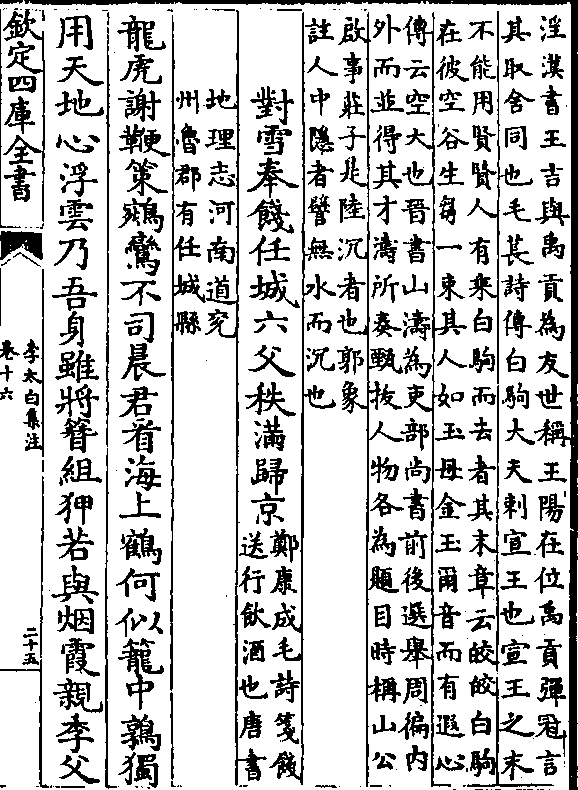 淫漢書王吉與禹貢為友世稱王陽在位禹貢彈冠言
其取舍同也毛萇詩傳白駒大夫刺宣王也宣王之末
不能用賢賢人有乗白駒而去者其末章云皎皎白駒
在彼空谷生芻一束其人如玉毋金玉爾音而有遐心
傳云空大也晉書山濤為吏部尚書前後選舉周徧内
外而並得其才濤所奏甄拔人物各為題目時稱山公
啟事莊子是陸沉者也郭象
註人中隱者譬無水而沉也
對雪奉餞任城六父秩滿歸京
鄭康成毛詩箋餞
送行飲酒也唐書
地理志河南道兖
州魯郡有任城縣
龍虎謝鞭策鵷鸞不司晨君看海上鶴何似籠中鶉獨
用天地心浮雲乃吾身雖將簪組狎若與烟霞親季父
欽定四庫全書
李太白集注
卷十六
二十五